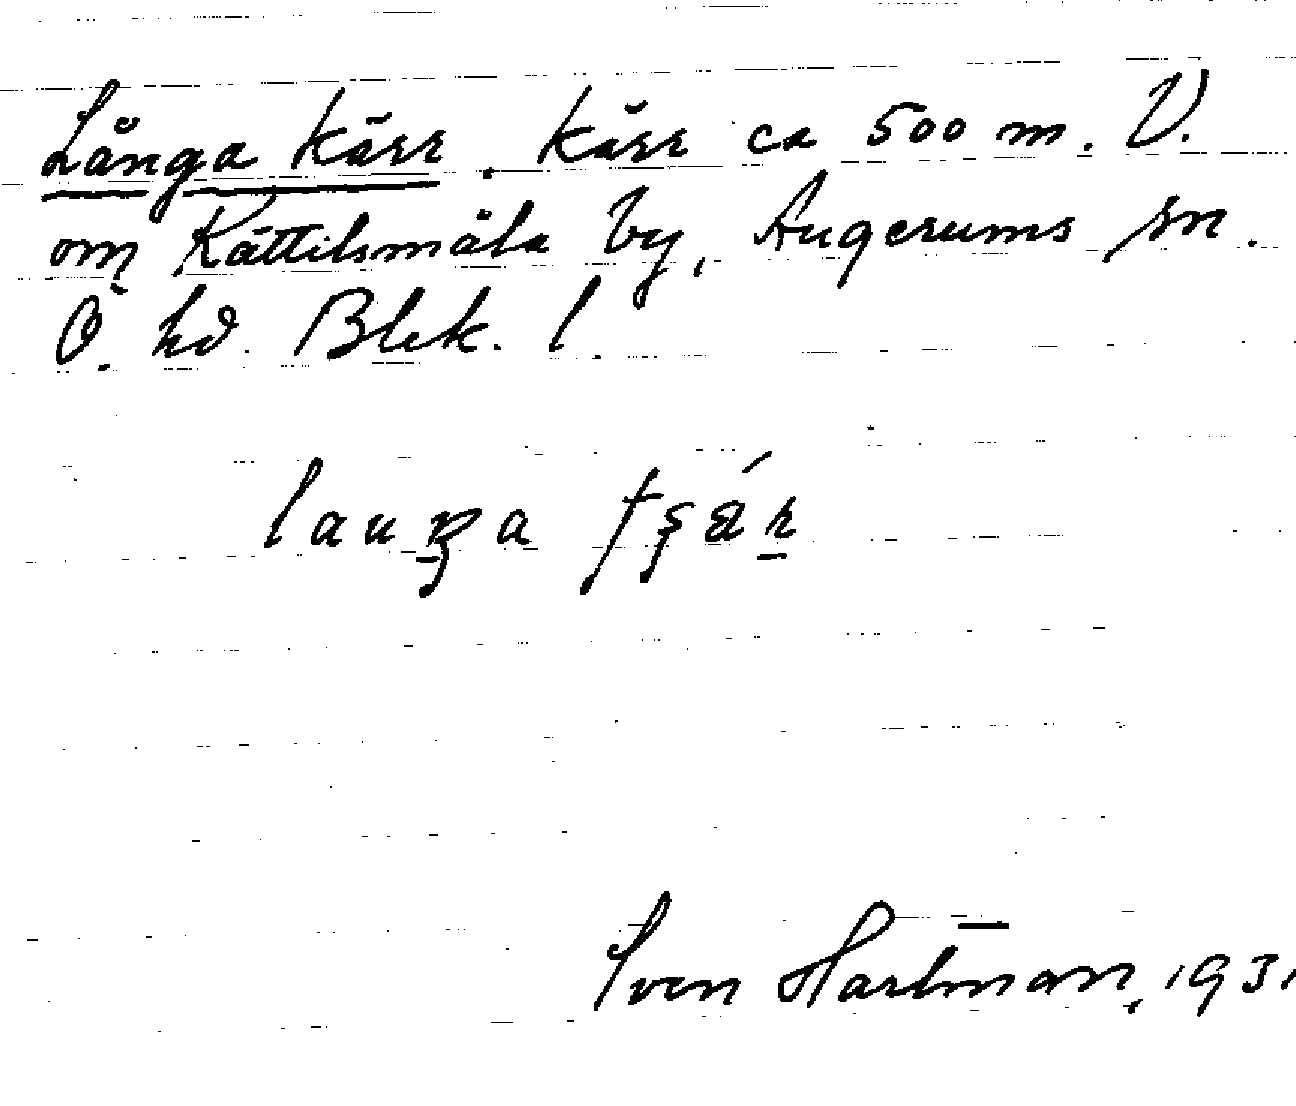 Långa kärr. Kärr ca 500 m. V.
om Kättilsmåla by, Augerums sn.
Ö. hd. Blek. l.
Sven Hartman, 1931